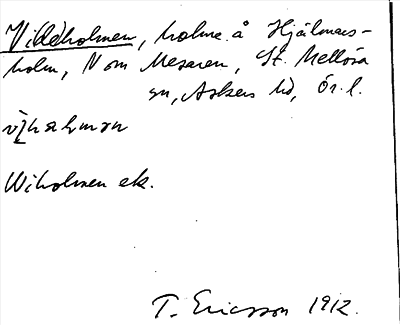 Videholmen, holme å Hjälmars-
holm, N om Mezaren, St. Mellösa
sn, Askers hd, Ör. l.
Wiholmen ek.
T. Ericsson 1912.